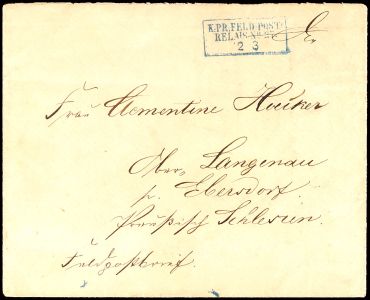 K. PR. FELD-POST
RELAIS Nr.
2 3
Frau Clementine Hücker
Ober Langenau
p. Ebersdorf.
Preußisch Schlesien.
Feldpostbrief.